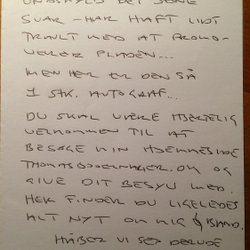 UNDSKYLD DET SENE
SVAR - HAR HAFT LIDT
TRAVLT MED AT PROMO-
VERE PLADEN...
MEN HER ER DEN SÅ
1 STK. AUTOGRAF...
DU SKAL VÆRE HJERTELIG
VELKOMMEN TIL AT
BESØGE MIN HJEMMESIDE
OG
GIVE DIT BESYV MED.
HER FINDER DU LIGELEDES
ALT NYT OM MIG & BAND.
HÅBER VI SES DERUDE